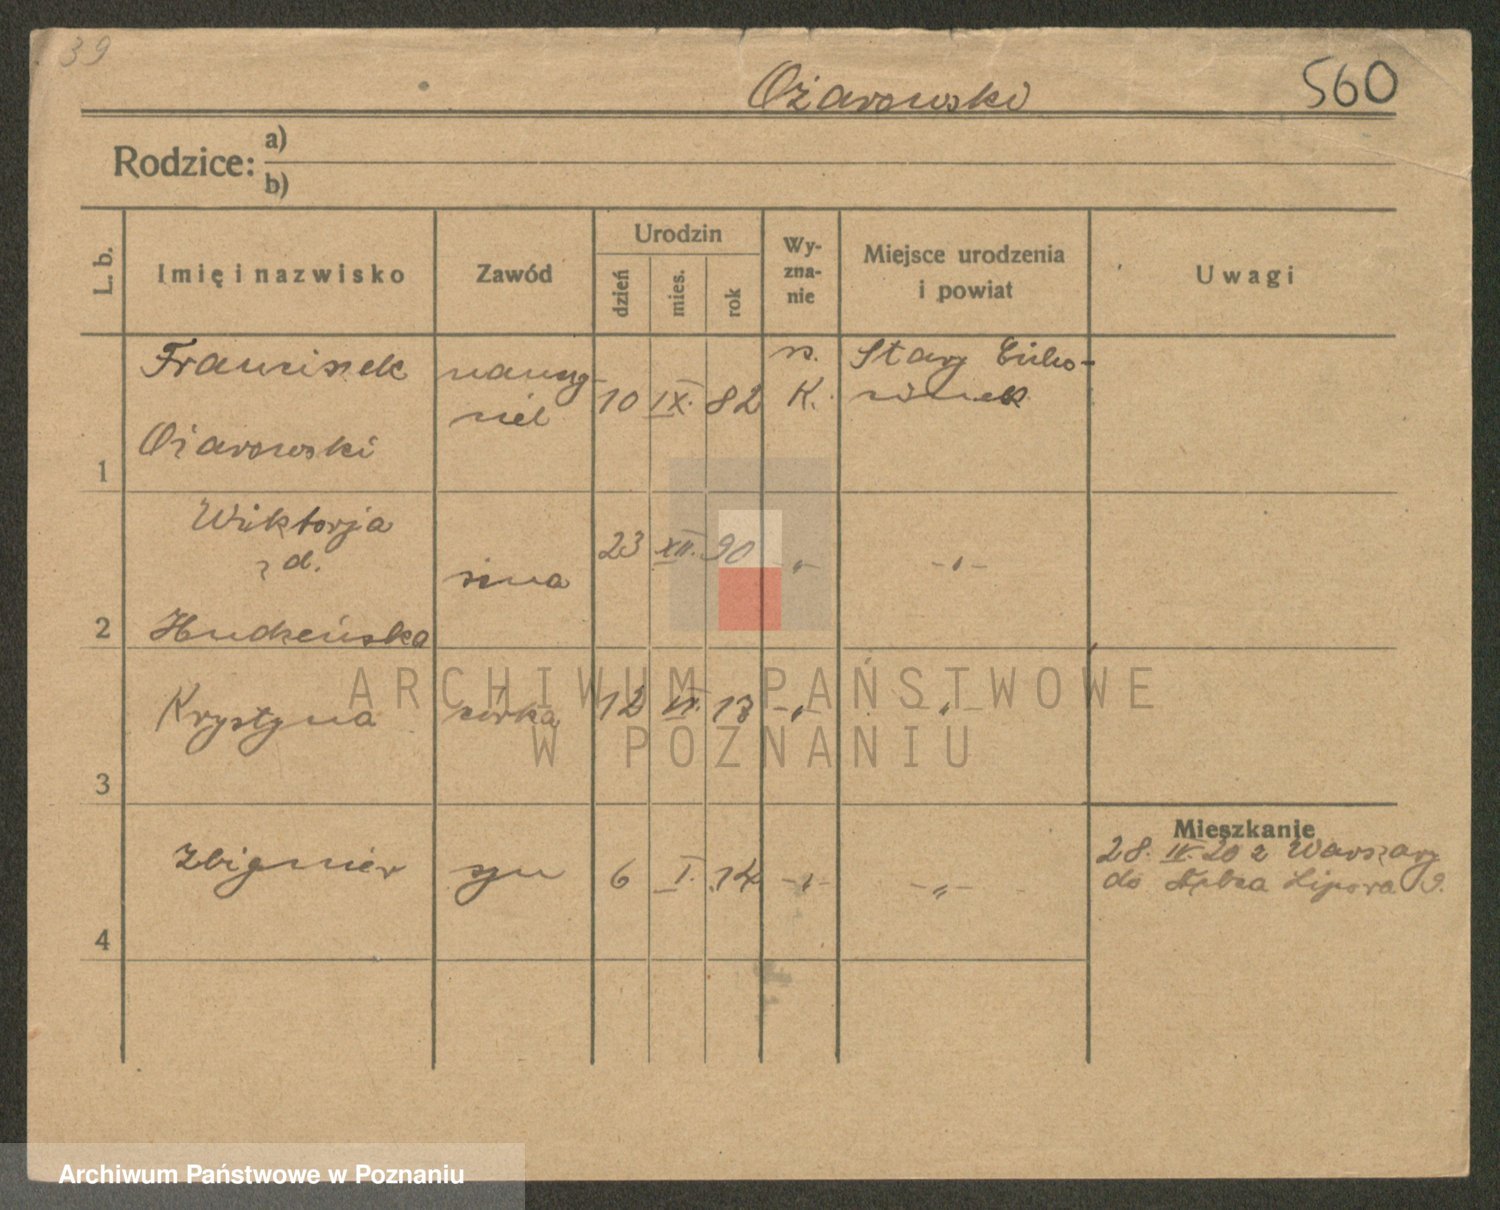 39
Ożarowski 560
Rodzice: a)
b)
L. b. Imię i nazwisko Zawód Urodzin dzień mies. rok Wy-zna-nie Miejsce urodzenia i powiat Uwagi
Franciszek nauczy- r. Stary
10 IX. 82 K.
ciel
1 Ożarowski
Wiktorja 23 XII. 90 -„- -„-
z d. żona
2
Krystyna córka 12 VI. 13 -„- -„-
3
Zbigniew syn 6 I. 14 -„- -„-
4
Mieszkanie
28. IV. 20 z Warszawy
do Słupca Lipowa 9.
ARCHIWUM PAŃSTWOWE
W POZNANIU
Archiwum Państwowe w Poznaniu